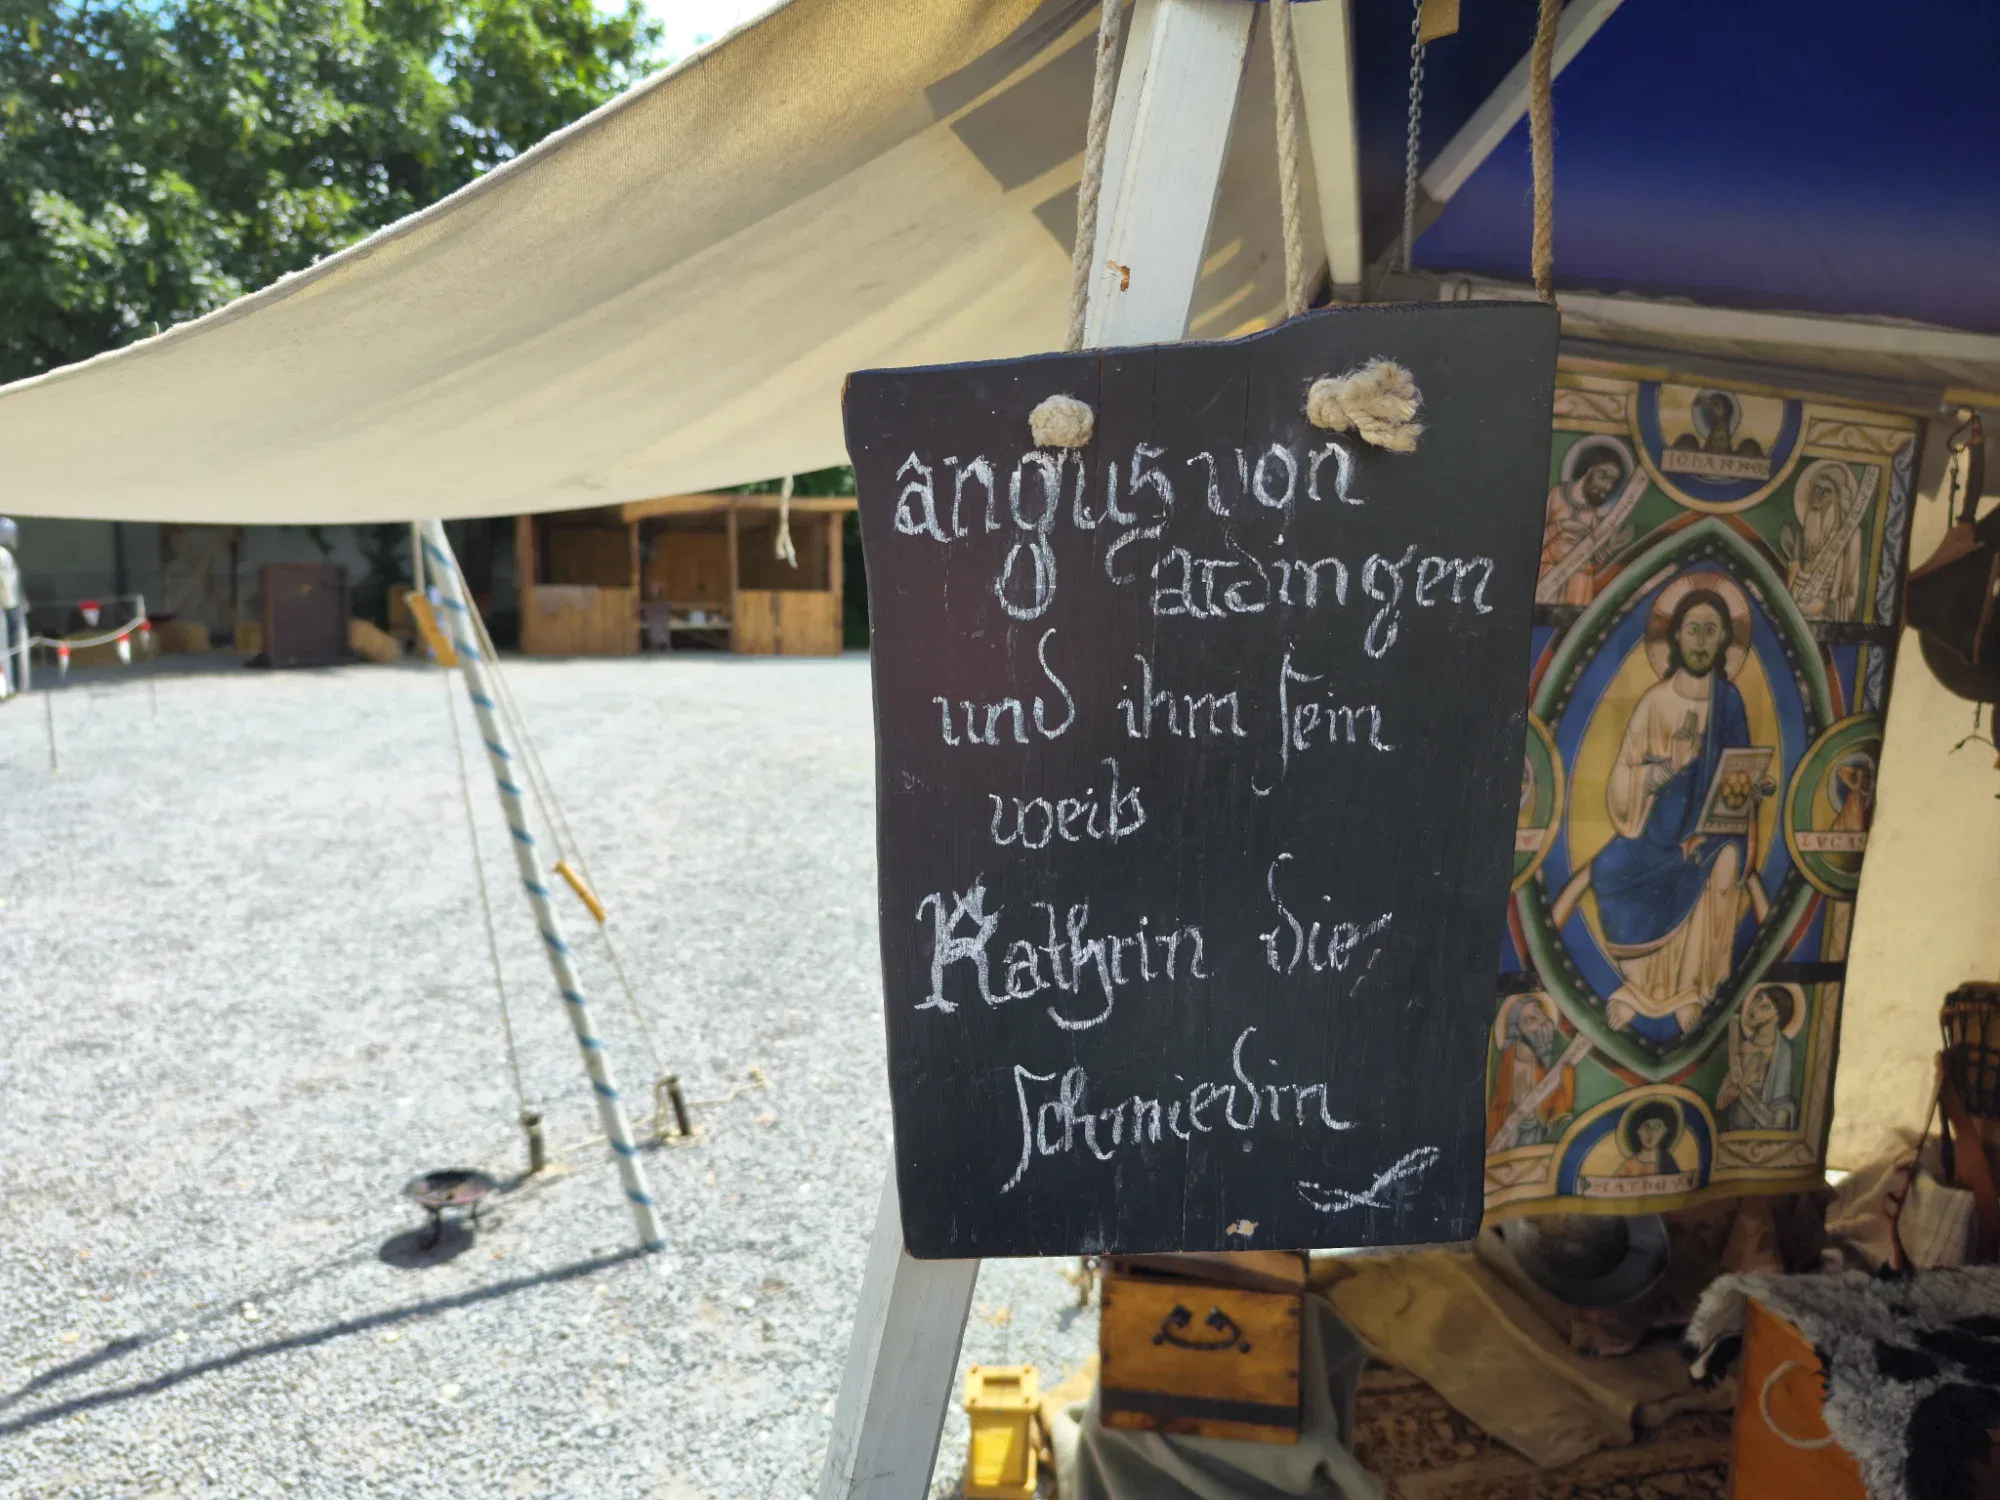 angus von
Gardingen
und ihm sein
weib
Kathrin die
Schmiedin
IOHANNES
LVCAS